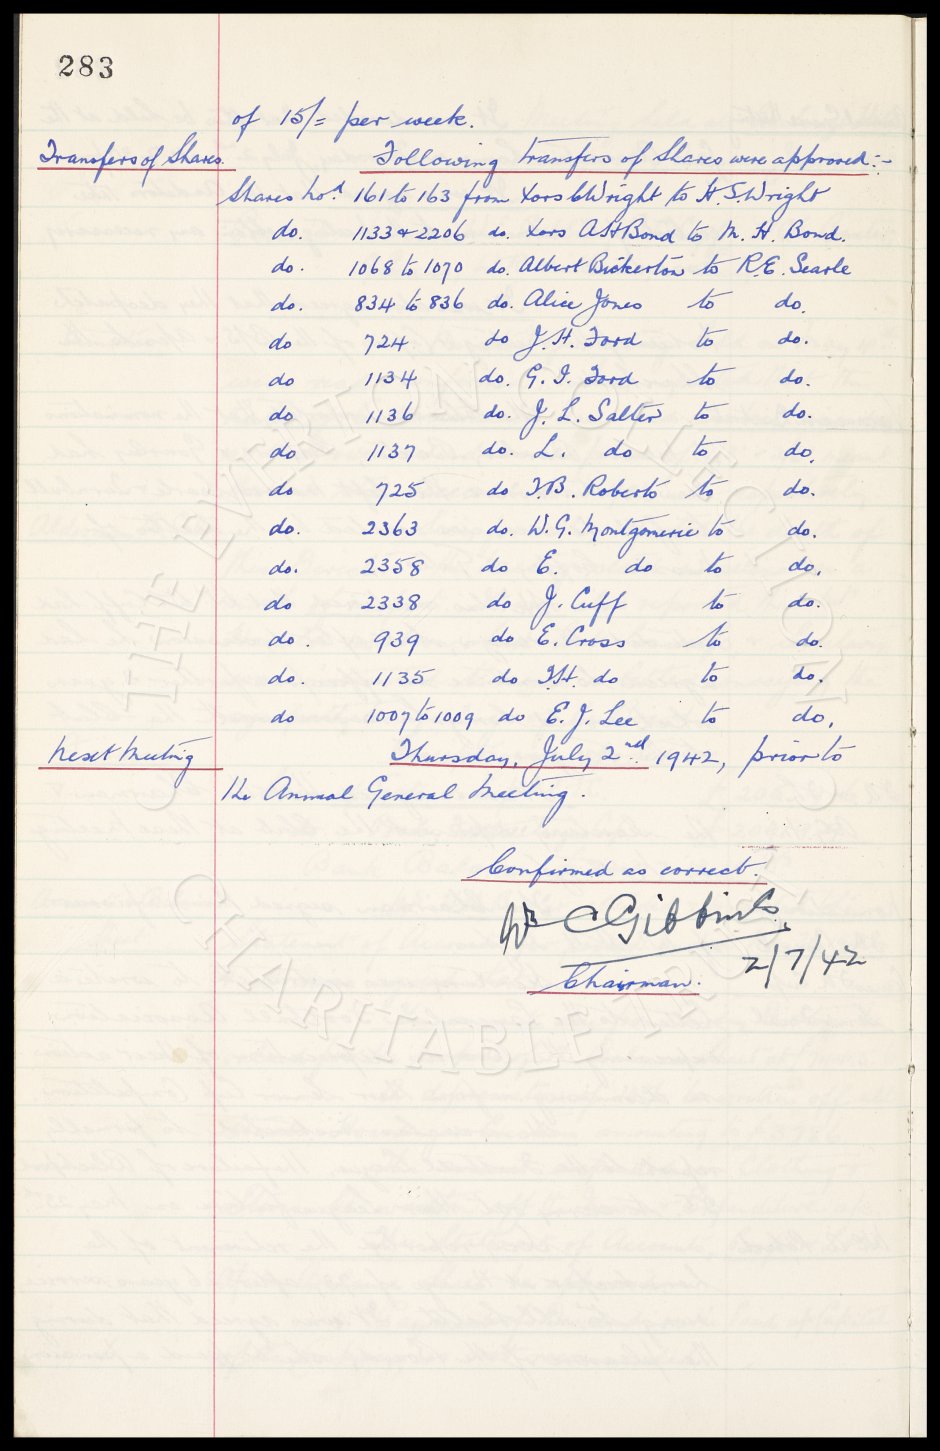 283
of 15/= per week.
Transfers of Shares. Following transfers of Shares were approved:-
Shares No.s 161 to 163 from Xors C Wright to H. S. Wright
do. 1133 & 2206 do. Xors A H Bond to M. H. Bond.
do. 1068 to 1070 do. Albert Bickerton to R.E. Searle
do. 834 to 836 do. Alice Jones to do.
do 724 do J. H. Ford to do.
do 1134 do. G. I. Ford to do.
do 1136 do. J. L. Salter to do.
do 1137 do. L. do to do.
do 725 do T.B. Roberts to do.
do. 2363 do. W. G. Montgomerie to do.
do. 2358 do E. do to do.
do 2338 do J. Cuff to do.
do. 939 do E. Cross to do.
do. 1135 do T.H. do to do.
do 1007 to 1009 do E. J. Lee to do.
Next Meeting Thursday, July 2nd. 1942, prior to
the Annual General Meeting.
Confirmed as correct.
Wm C Gibbins
2/7/42
Chairman.
THE EVERTON COLLECTION
CHARITABLE TRUST